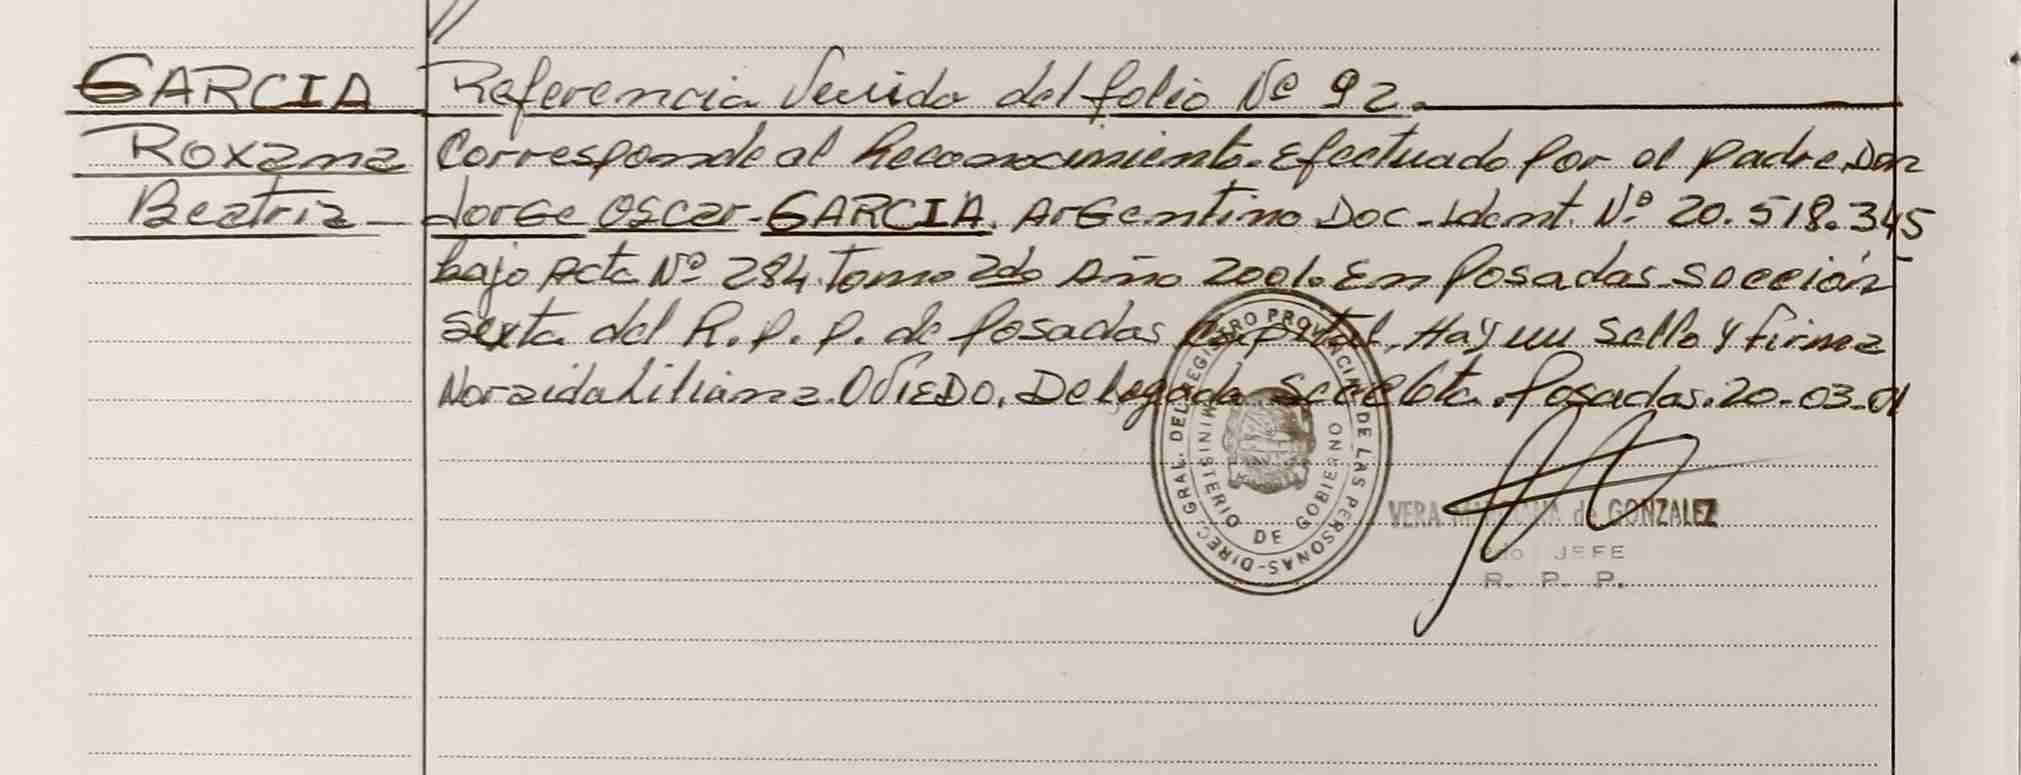 GARCIA
Roxana
Beatriz
Referencia Venida del folio Nº 92.
Corresponde al Reconocimiento. Efectuado por el padre Don
Jorge Oscar GARCIA. Argentino Doc-Ident. Nº 20.518.345
bajo Acta Nº 284 Tomo 2do Año 2001. En Posadas Sección
Sexta del R.P.P. de Posadas Capital. Hay un Sello y firma
Liliana OVIEDO. Delegada. Posadas. 20-03-01
DIREC. GRAL. DEL REGISTRO PROVINCIAL DE LAS PERSONAS
MINISTERIO DE GOBIERNO
VERA de GONZALEZ
JEFE
R. P. P.